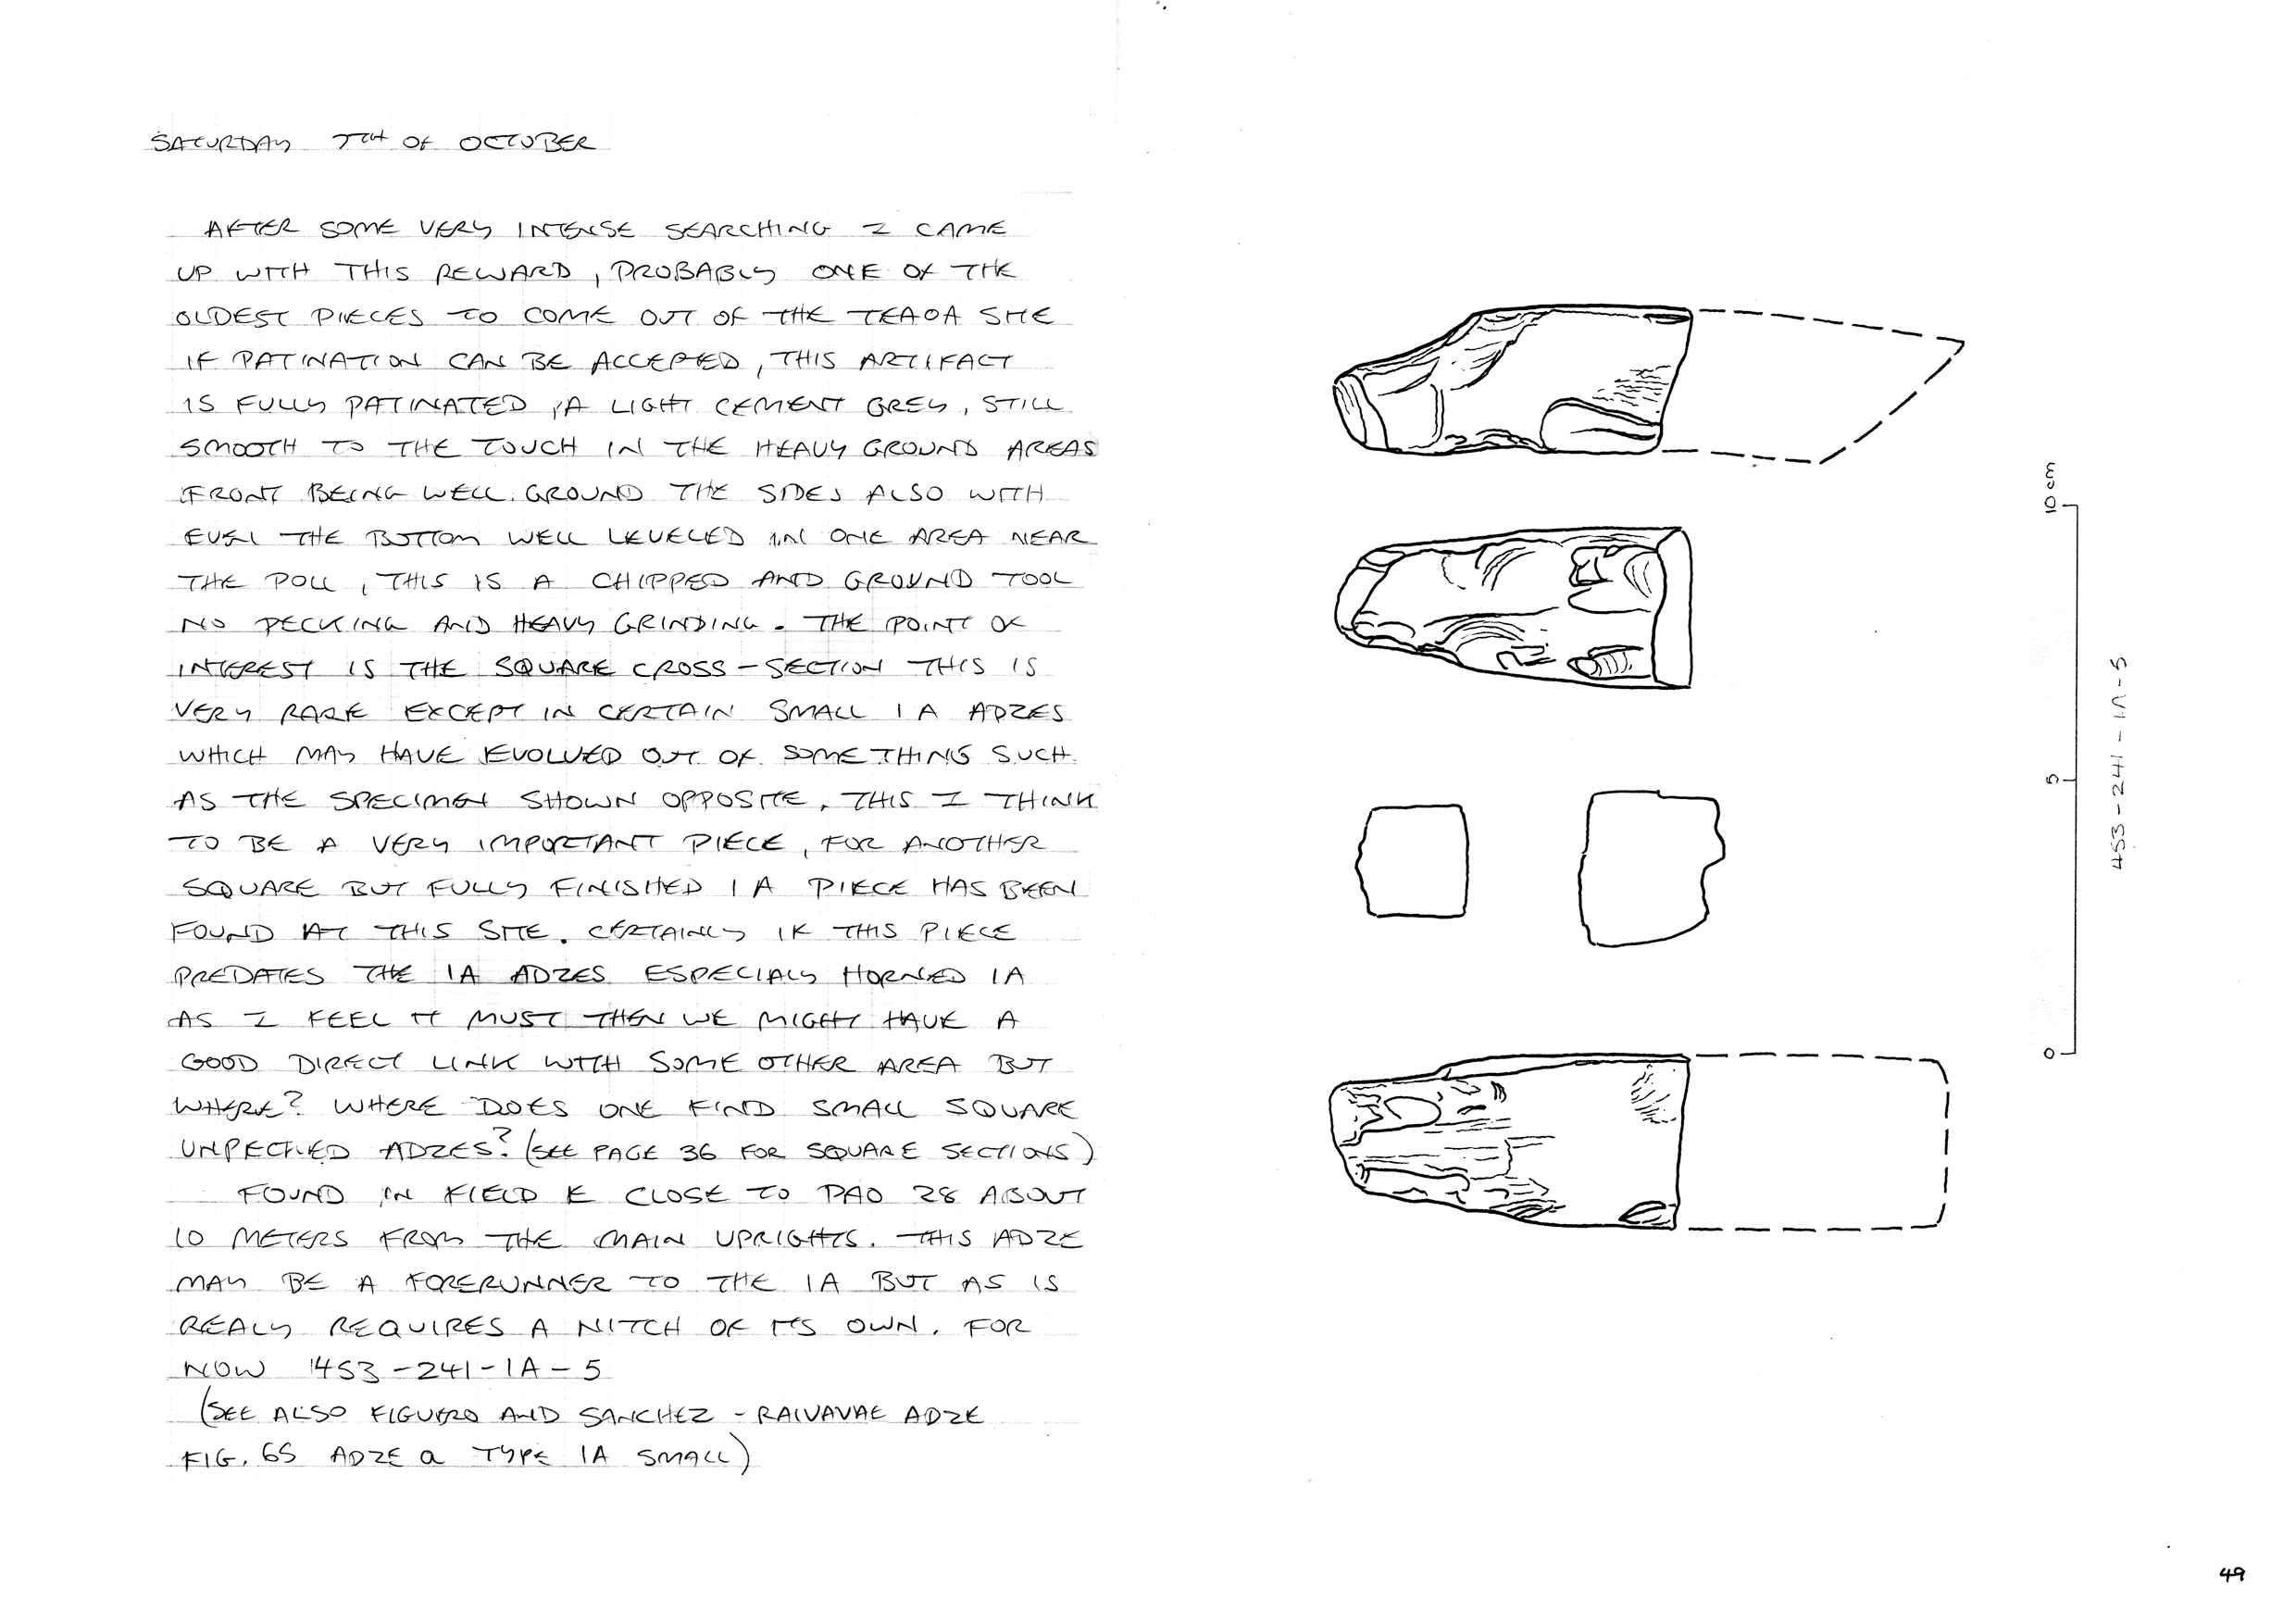 SATURDAY 7TH OF OCTOBER
AFTER SOME VERY INTENSE SEARCHING I CAME
UP WITH THIS REWARD, PROBABLY ONE OF THE
OLDEST PIECES TO COME OUT OF THE TEAOA SITE
IF PATINATION CAN BE ACCEPTED, THIS ARTIFACT
IS FULLY PATINATED, A LIGHT CEMENT GREY, STILL
SMOOTH TO THE TOUCH IN THE HEAVY GROUND AREAS
FRONT BEING WELL GROUND THE SIDES ALSO WITH
EVEN THE BOTTOM WELL LEVELED IN ONE AREA NEAR
THE POLL, THIS IS A CHIPPED AND GROUND TOOL
NO PECKING AND HEAVY GRINDING. THE POINT OF
INTEREST IS THE SQUARE CROSS-SECTION THIS IS
VERY RARE EXCEPT IN CERTAIN SMALL 1A ADZES
WHICH MAY HAVE EVOLVED OUT OF SOMETHING SUCH
AS THE SPECIMEN SHOWN OPPOSITE, THIS I THINK
TO BE A VERY IMPORTANT PIECE, FOR ANOTHER
SQUARE BUT FULLY FINISHED 1A PIECE HAS BEEN
FOUND AT THIS SITE. CERTAINLY IF THIS PIECE
PREDATES THE 1A ADZES ESPECIALY HORNED 1A
AS I FEEL IT MUST THEN WE MIGHT HAVE A
GOOD DIRECT LINK WITH SOME OTHER AREA BUT
WHERE? WHERE DOES ONE FIND SMALL SQUARE
UNPECKED ADZES? (SEE PAGE 36 FOR SQUARE SECTIONS)
FOUND IN FIELD E CLOSE TO PAO 28 ABOUT
10 METERS FROM THE MAIN UPRIGHTS. THIS ADZE
MAY BE A FORERUNNER TO THE 1A BUT AS IS
REALY REQUIRES A NITCH OF ITS OWN. FOR
NOW 453-241-1A-5
(SEE ALSO FIGUERO AND SANCHEZ - RAIVAVAE ADZE
FIG. 65 ADZE a TYPE 1A SMALL)
10 cm
5
0
453-241-1A-5
49